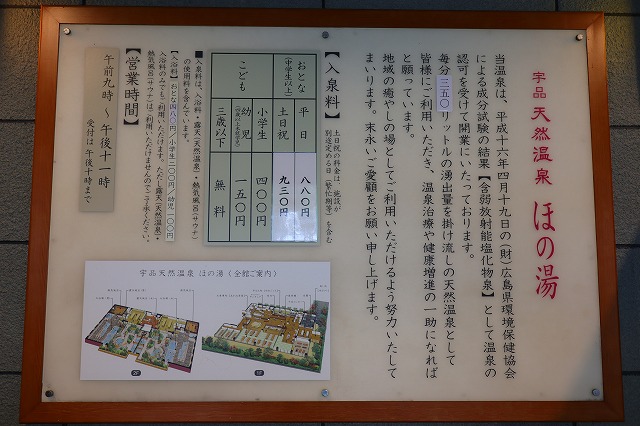 宇品 天然温泉 ほの湯
当温泉は、平成十六年四月十九日の(財)広島県環境保健協会
による成分試験の結果【含弱放射能塩化物泉】として温泉の
認可を受けて開業にいたっております。
毎分三五〇リットルの湧出量を掛け流しの天然温泉として
皆様にご利用いただき、温泉治療や健康増進の一助になれば
と願っています。
地域の癒やしの場としてご利用いただけるよう努力いたして
まいります。末永いご愛顧をお願い申し上げます。
【入泉料】
土日祝の料金は、施設が
別途定める日(繁忙期等)を含む
おとな
(中学生以上)
平日
八八〇円
土日祝
九三〇円
こども
小学生
四〇〇円
幼児
一五〇円
三歳以下
無料
■入泉料は、入浴料・露天(天然温泉)・熱気風呂(サウナ)
の使用料を含んでいます。
【入浴料】おとな四八〇円/小学生二〇〇円/幼児一〇〇円
入浴料のみでもご利用いただけます。ただし露天(天然温泉)・
熱気風呂(サウナ)はご利用いただけませんのでご了承ください。
【営業時間】
午前九時～午後十一時
受付は午後十時まで
宇品天然温泉 ほの湯(全館ご案内)
2F
1F